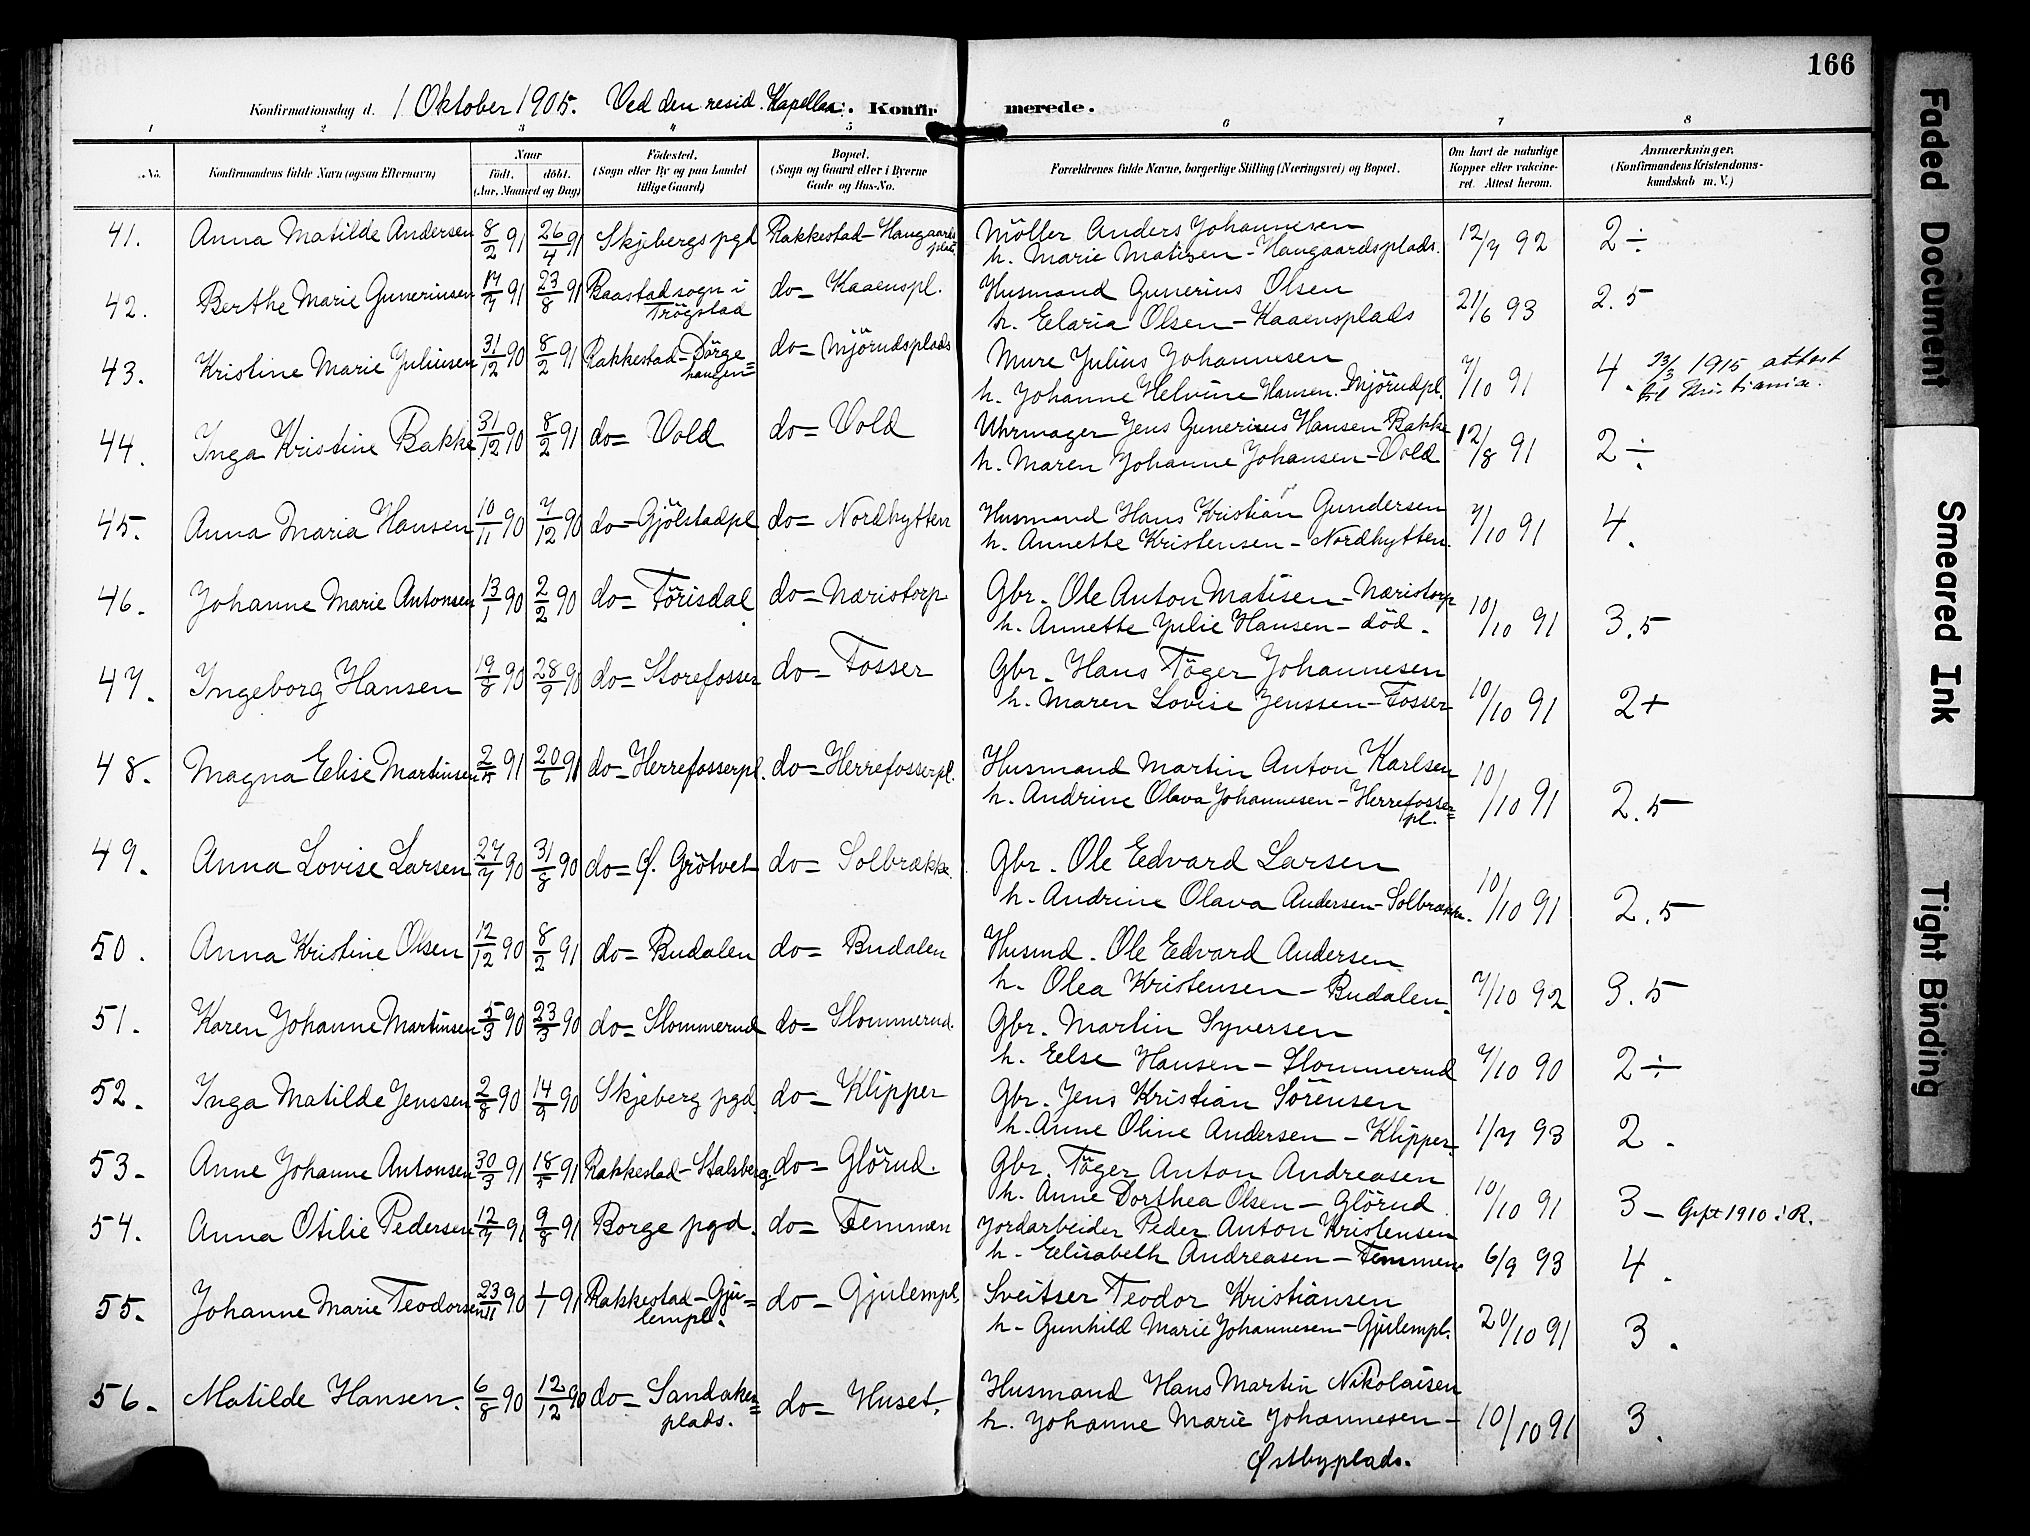 166
Konfirmationsdag d. 1 Oktober 1905. Ved den resid. Kapellan. Konfirmerede.
1 2 3 4 5 6 7 8
No. Konfirmandens fulde Navn (ogsaa Efternavn) Naar Født. døbt. (Aar, Maaned og Dag) Fødested. (Sogn eller By og paa Landet tillige Gaard) Bopæl. (Sogn og Gaard eller i Byerne Gade og Hus-No. Forældrenes fulde Navne, borgerlige Stilling (Næringsvei) og Bopæl. Om havt de naturlige Kopper eller vaccineret. Attest herom. Anmærkninger. (Konfirmandens Kristendomskundskab m. V.)
41. Anna Matilde Andersen 8/2 91 26/4 91 Skjebergs pgd Rakkestad - Haugaardsplads Möller Anders Johannesen 12/7 92 2 ÷
h. Marie Matisen - Haugaardsplads.
42. Berthe Marie Gunerinsen 17/7 91 23/8 91 Baastad sogn i Trögstad do - Kaaenspl. Husmand Gunerius Olsen 21/6 93 2.5
h. Elaria Olsen - Kaaensplads
43. Kristine Marie Juliusen 31/12 90 8/2 91 Rakkestad - Dörgehaugen do - Mjörudsplads Mure Julius Johannesen 7/10 91 4. 23/3 1915 attest til Kristiania.
h. Johanne Helvine Hansen. Mjörudpl.
44. Inga Kristine Bakke 31/12 90 8/2 91 do = Vold do = Vold Uhrmager Jens Gunerius Hansen Bakke 12/8 91 2 ÷
h. Maren Johanne Johansen - Vold
45. Anna Maria Hansen 10/11 90 7/12 90 do = Gjölstadpl do = Nordhytten Husmand Hans Kristian Gundersen 7/10 91 4.
h. Annette Kristensen - Nordhytten.
46. Johanne Marie Antonsen 13/1 90 2/2 90 do = Törisdal do = Næristorp Gbr. Ole Anton Matisen - Næristorp 10/10 91 3.5
h. Annette Julie Hansen - död.
47. Ingeborg Hansen 19/8 90 28/9 90 do = Storefosser do = Fosser Gbr. Hans Töger Johannesen 10/10 91 2+
h. Maren Lovise Jenssen - Fosser
48. Magna Elise Martinsen 2/5 91 20/6 91 do - Herrefosserpl. do = Herrefosserpl. Husmand Martin Anton Karlsen 10/10 91 2.5
h. Andrine Olava Johannesen - Herrefosserpl.
49. Anna Lovise Larsen 27/7 90 31/8 90 do = Ø. Grötvet do = Solbrække. Gbr. Ole Edvard Larsen 10/10 91 2.5
h. Andrine Olava Andersen - Solbrække.
50. Anna Kristine Olsen 12/12 90 8/2 91 do = Budalen do = Budalen Husmd. Ole Edvard Andersen 7/10 92 3.5
h. Olea Kristensen - Budalen.
51. Karen Johanne Martinsen 5/3 90 23/3 90 do = Slommerud do = Slommerud. Gbr. Martin Syversen 7/10 90 2 ÷
h. Else Hansen - Slommerud
52. Inga Matilde Jenssen 2/8 90 14/9 90 Skjeberg pgd. do = Klipper Gbr. Jens Kristian Sörensen 1/7 93 2.
h. Anne Oline Andersen - Klipper.
53. Anne Johanne Antonsen 30/3 91 18/5 91 Rakkestad - Stalsberg. do = Glörud. Gbr. Töger Anton Andreasen 10/10 91 3 - Gift 1910 i R.
h. Anne Dorthea Olsen - Glörud.
54. Anna Otilie Pedersen 12/7 91 9/8 91 Borge pgd. do = Femmen Jordarbeider Peder Anton Kristensen 6/9 93 4.
h. Elisabeth Andreasen - Femmen.
55. Johanne Marie Teodorsen 23/11 90 1/1 91 Rakkestad - Gjulempl. do - Gjulempl. Sveitser Teodor Kristiansen 20/10 91 3.
h. Gunhild Marie Johannesen - Gjulempl.
56. Matilde Hansen. 6/8 90 12/12 90 do = Sandakerplads. do = Huset. Husmand Hans Martin Nikolaisen 10/10 91 3.
h. Johanne Marie Johannesen - Østbyplads.
Faded Document
Smeared Ink
Tight Binding